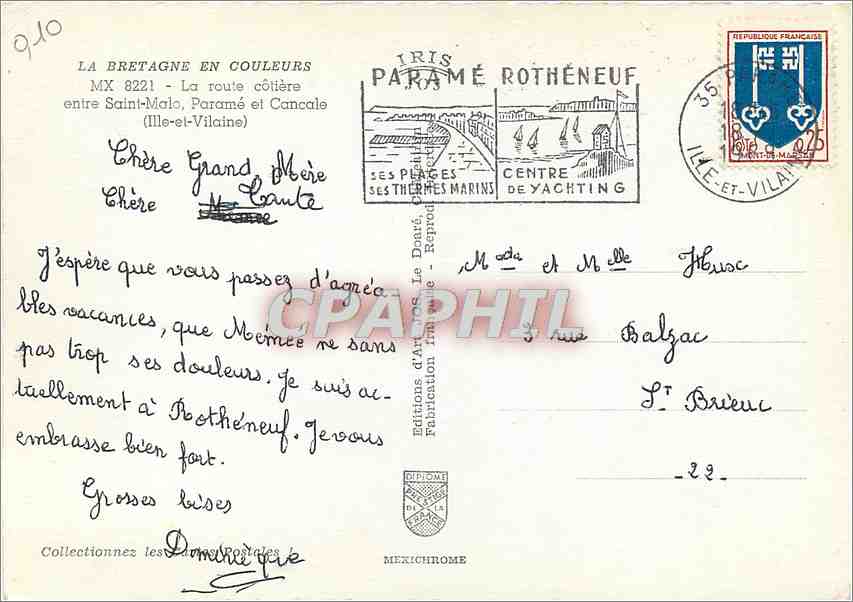 910
LA BRETAGNE EN COULEURS
MX 8221 - La route côtière
entre Saint-Malo, Paramé et Cancale
(Ille-et-Vilaine)
IRIS
JOS
PARAMÉ ROTHÉNEUF
SES PLAGES
SES THERMES MARINS
CENTRE
DE YACHTING
REPUBLIQUE FRANÇAISE
0,25
MONT-DE-MARSAN
35
18
ILLE-ET-VILAINE
Chère Grand Mère
Chère Tante
J'espère que vous passez d'agréa-
bles vacances, que Mémée ne sans
pas trop ses douleurs. Je suis ac-
tuellement à Rothéneuf. Je vous
embrasse bien fort.
Grosses bises
Dominique
Mada et Melle Husc
3 rue Balzac
St Brieuc
-22-
CPAPHIL
Editions d'Art JOS Le Doaré,
Fabrication française - Reprod.
DIPLOME
PRESTIGE
DE LA
FRANCE
Collectionnez les Cartes Postales !
MEXICHROME